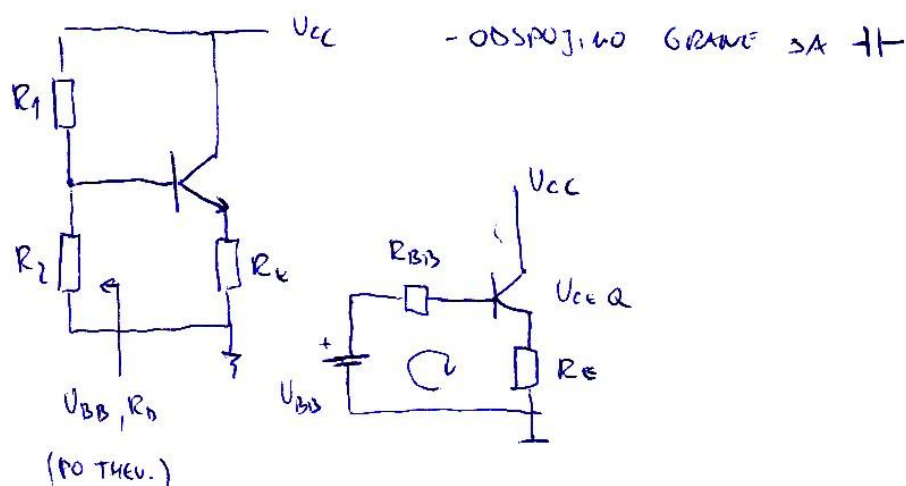 UCC
- ODSPOJIMO GRANE SA
R1
R2
RE
UBB, RB
(PO THEV.)
UCC
RBB
UCEQ
RE
+
UBB